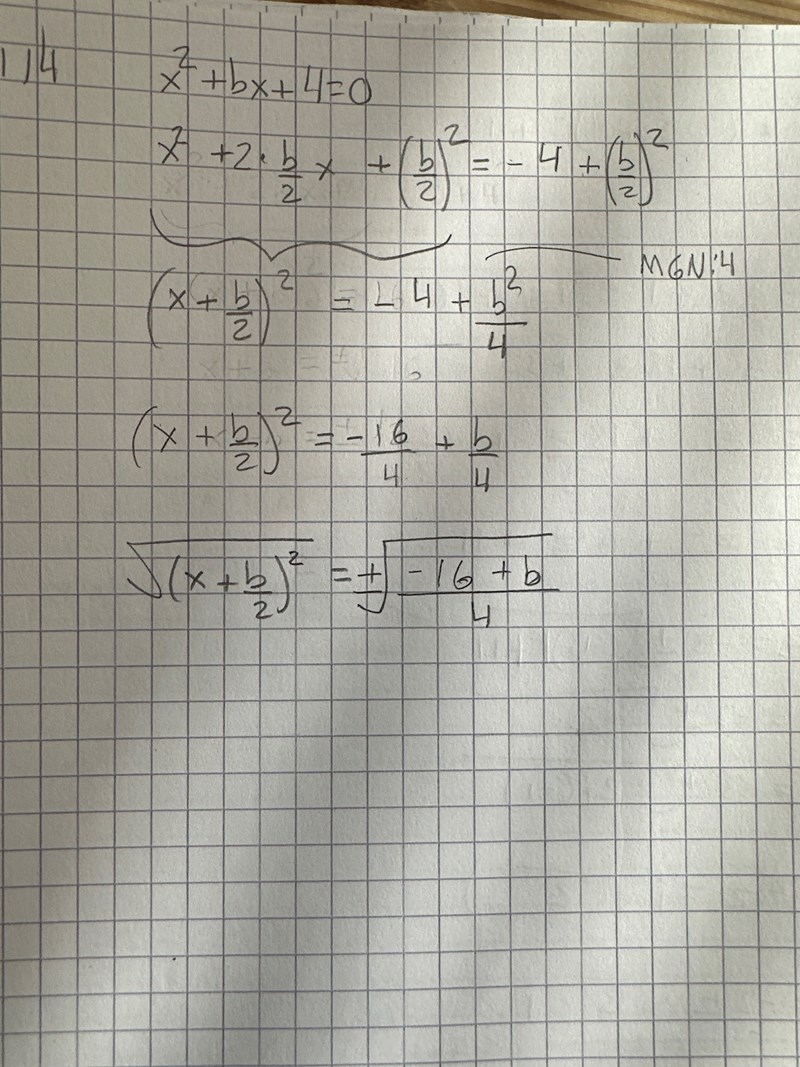 1,14
x² + bx + 4 = 0
x² + 2 · b/2 x + (b/2)² = - 4 + (b/2)²
MGN:4
(x + b/2)² = - 4 + b²/4
(x + b/2)² = - 16/4 + b/4
√(x + b/2)² = ± √(- 16 + b)/4